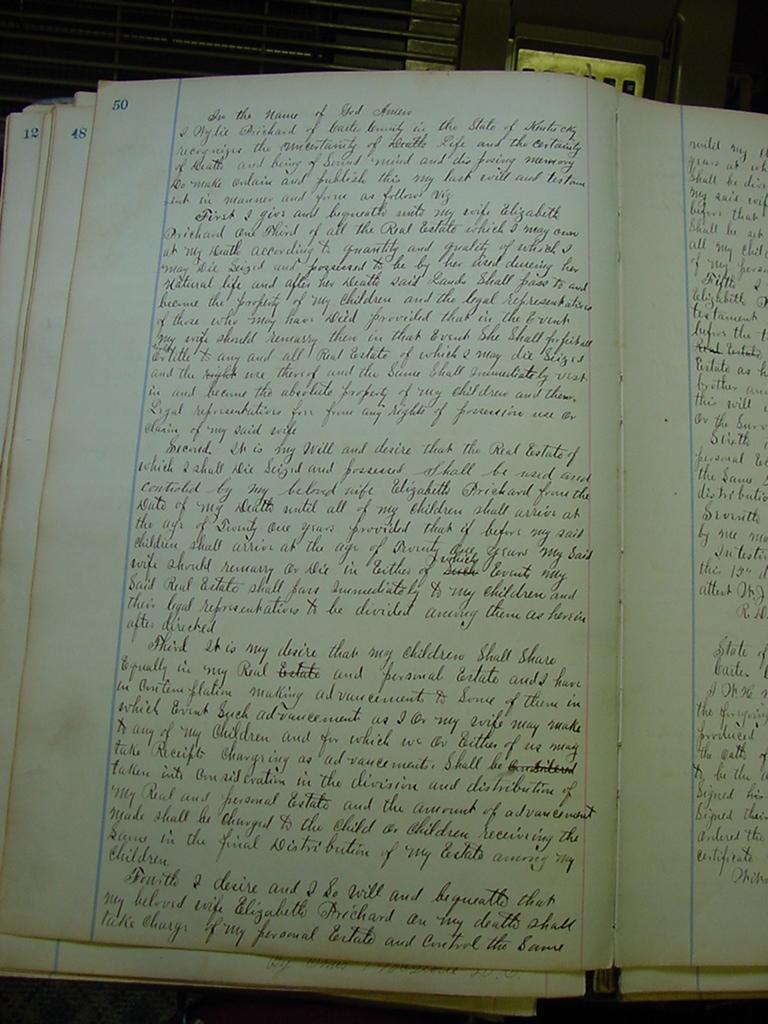 50
12
48
In the name of God Amen
I Wylie Prichard of Carter County in the State of Kentucky
recognizes the uncertainty of Death Life and the certainty
of Death and being of Sound mind and disposing memory
Do make ordain and publish this my last will and testam
ent in manner and form as follows Viz
First I give and bequeath unto my wife Elizabeth
Prichard One Third of all the Real Estate which I may own
at my Death according to quantity and quality of which I
may Die Seized and possessed to be by her used dureing her
Natural life and after her Death said Lands Shall pass to and
become the property of my Children and the legal representatives
of those who may have Died provided that in the Event
my wife should remarry then in that Event She Shall forfeit all
title to any and all Real Estate of which I may die Seized
and the right use thereof and the Same Shall immediately vest
in and become the absolute property of my Children and their
Legal representatives free from any rights of possession use or
claim of my said wife
Second It is my Will and desire that the Real Estate of
which I shall Die Seized and possessed Shall be used and
controled by my beloved wife Elizabeth Prichard from the
Date of my Death until all of my Children shall arrive at
the age of Twenty One years provided that if before my said
Children shall arrive at the age of Twenty One years my Said
wife should remarry or Die in Either of which Such Events my
Said Real Estate shall pass immediately to my children and
their legal representatives to be divided among them as herein
after directed
Third It is my desire that my children Shall Share
Equally in my Real Estate and personal Estate and I have
in Contemplation making advancements to Some of them in
which Event Such advancements as I or my wife may make
to any of my Children and for which we or Either of us may
take Receipts Chargeing as advancements Shall be Considered
taken into Consideration in the division and distribution of
my Real and personal Estate and the amount of advancement
made shall be Charged to the Child or Children receiving the
same in the final Distribution of my Estate among my
children
Fourth I desire and I do will and bequeath that
my beloved wife Elizabeth Prichard on my death shall
take Charge of my personal Estate and Control the Same
until my
years at
Shall be
my said wife
before that
Shall be set
all my Child
of my perso
Fifth I
Elizabeth P
testament
before the
Real Estate
Estate as
brother an
this will
or the Surv
Sixth
personal Es
the Same
distributio
Seventh
by me
In testi
this 12th d
attest W. J
R. D
State of
Carter
I
the foregoing
produced
the oath of
to be the
Signed his
Signed thei
ordered the
certificate